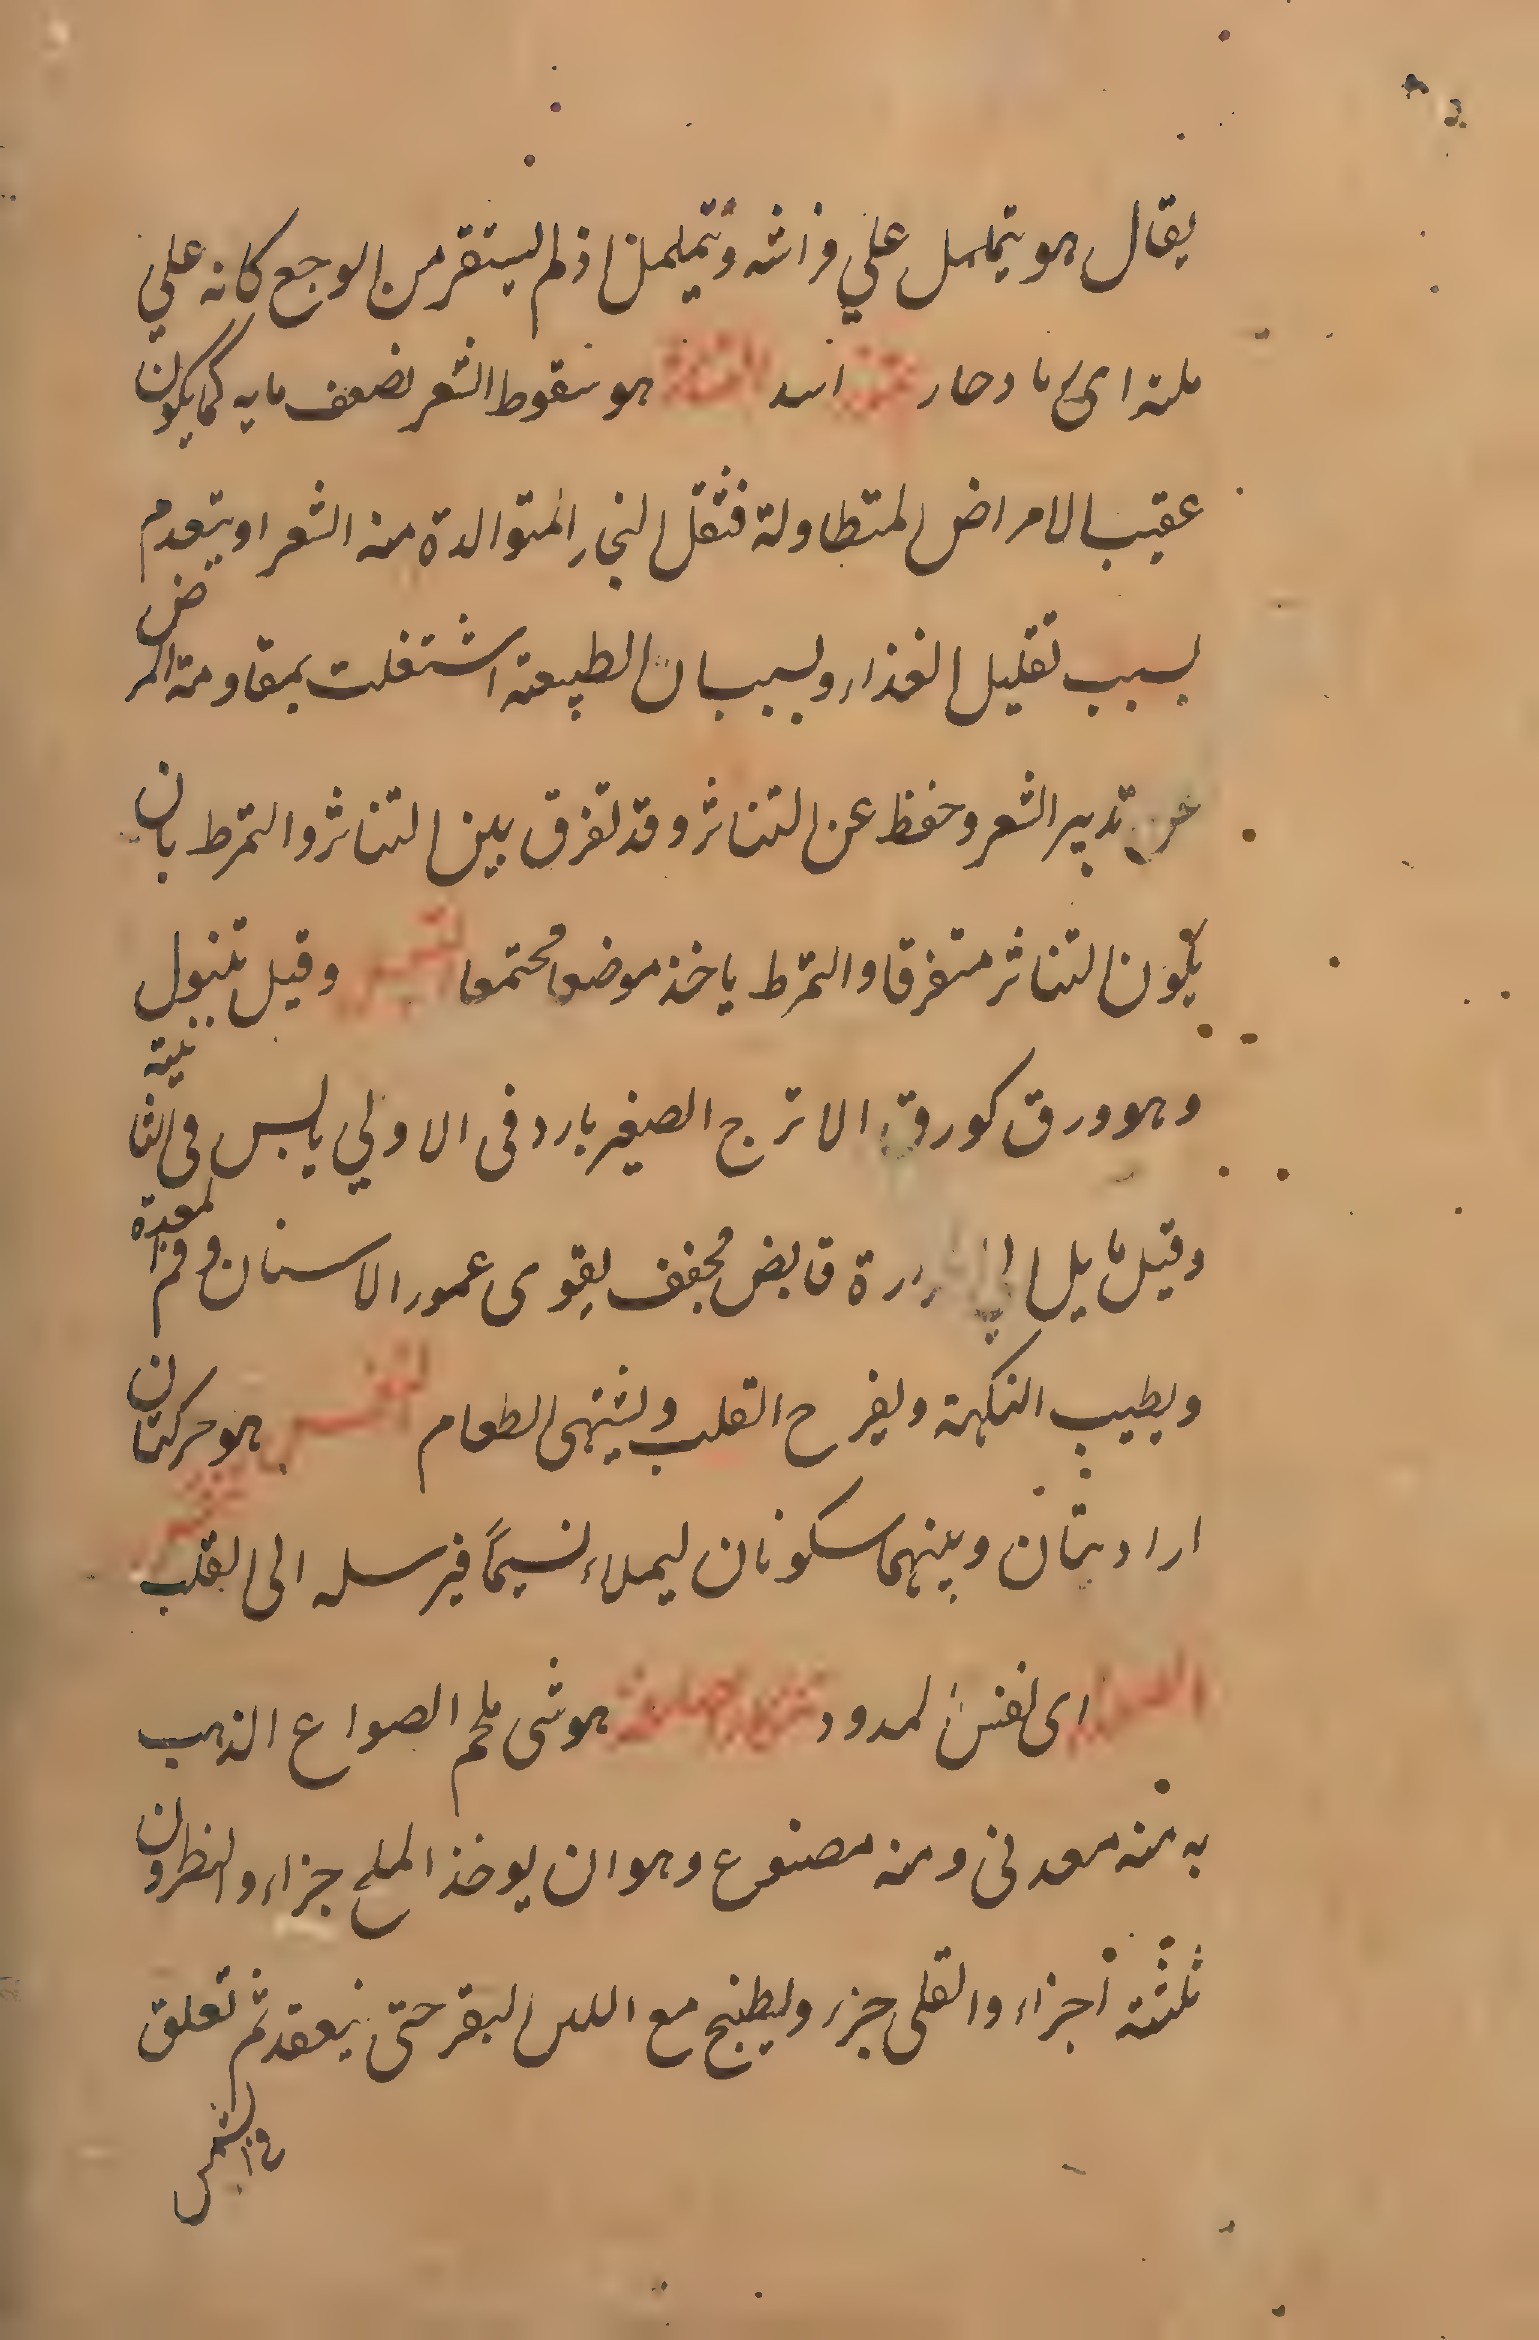 يقال هو يتململ علي فراشه وتتململ اذ لم يستقر من الوجع كانه علي
ملة اى رماد حار هو سقوط الشعر لضعف مايه كما يكون
عقيب الامراض المتطاولة فتقل البخار المتوالدة منه الشعر او ينعدم
بسبب تقليل الغذاء وبسبب ان الطبيعة اشتغلت بمقاومة المرض
عن تدبير الشعر وحفظ عن التناثر وقد تفرق بين التناثر والتمرط بان
يكون التناثر متفرقا والتمرط ياخذ موضعا مجتمعا وقيل تنبول
وهو ورق كورق الاترج الصغير بارد فى الاولي يابس فى الثانية
وقيل مايل الي الحرارة قابض مجفف يقوى عمور الاسنان وفم المعدة
ويطيب النكهة ويفرح القلب ويشتهى الطعام التنفس هو حركتان
اراديتان وبينهما سكونان ليملاء نسيما فيرسله الى القلب
اى تنفس الممدود هو شى يلحم الصواع الذهب
به منه معدنى ومنه مصنوع وهو ان يوخذ الملح جزاء والنطرون
ثلثة اجزاء والقلى جزء ويطبخ مع اللبن البقر حتى ينعقد ثم تعلق
فى الشمس